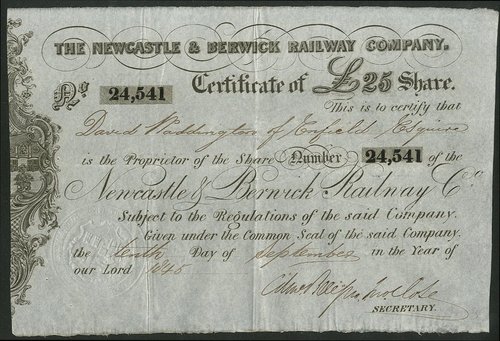 THE NEWCASTLE & BERWICK RAILWAY COMPANY.
No 24,541 Certificate of £25 Share.
This is to certify that
David Waddington of Enfield Esquire
is the Proprietor of the Share Number 24,541 of the
Newcastle & Berwick Railway Co.
Subject to the Regulations of the said Company.
Given under the Common Seal of the said Company.
the tenth Day of September in the Year of
our Lord 1845
SECRETARY.